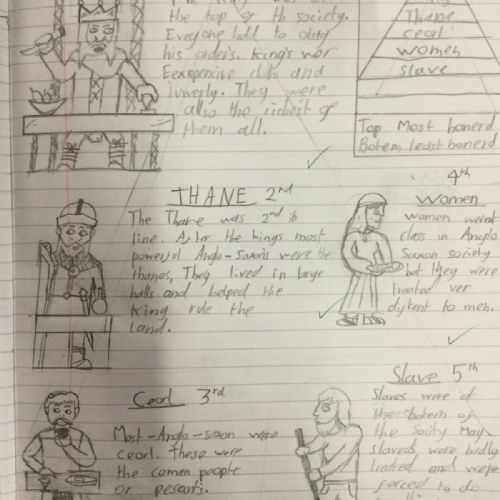 the top of th society.
Everyone hald to obay
his orders. King's wor
Eexspencive cloths and
They were
also the richest of
them all.
Thane
ceorl
women
slave
Top Most honerd
Botem least honerd
THANE 2nd
The Thane was 2nd in
line. After the kings most
powerful Anglo-saxons were the
thanes, They lived in large
halls and helped the
King rule the
Land.
4th
Women
Women werent
class in Anglo
Saxon society
but they were
treeted ver
to men.
Ceorl 3rd
Most-Anglo-saxon were
ceorl. These were
the coman people
or pesents.
Slave 5th
Slaves were at
the botem of
the
slaves, were badly
treated and were
forced to do